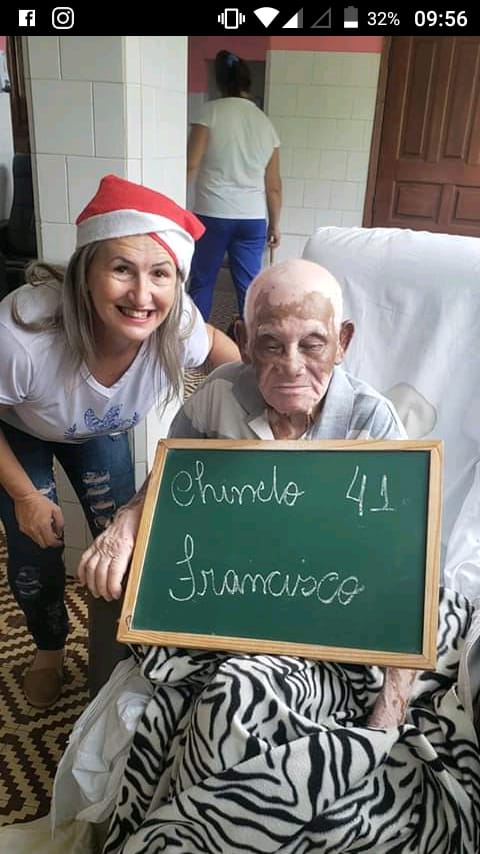 32% 09:56
Chinelo 41
Francisco